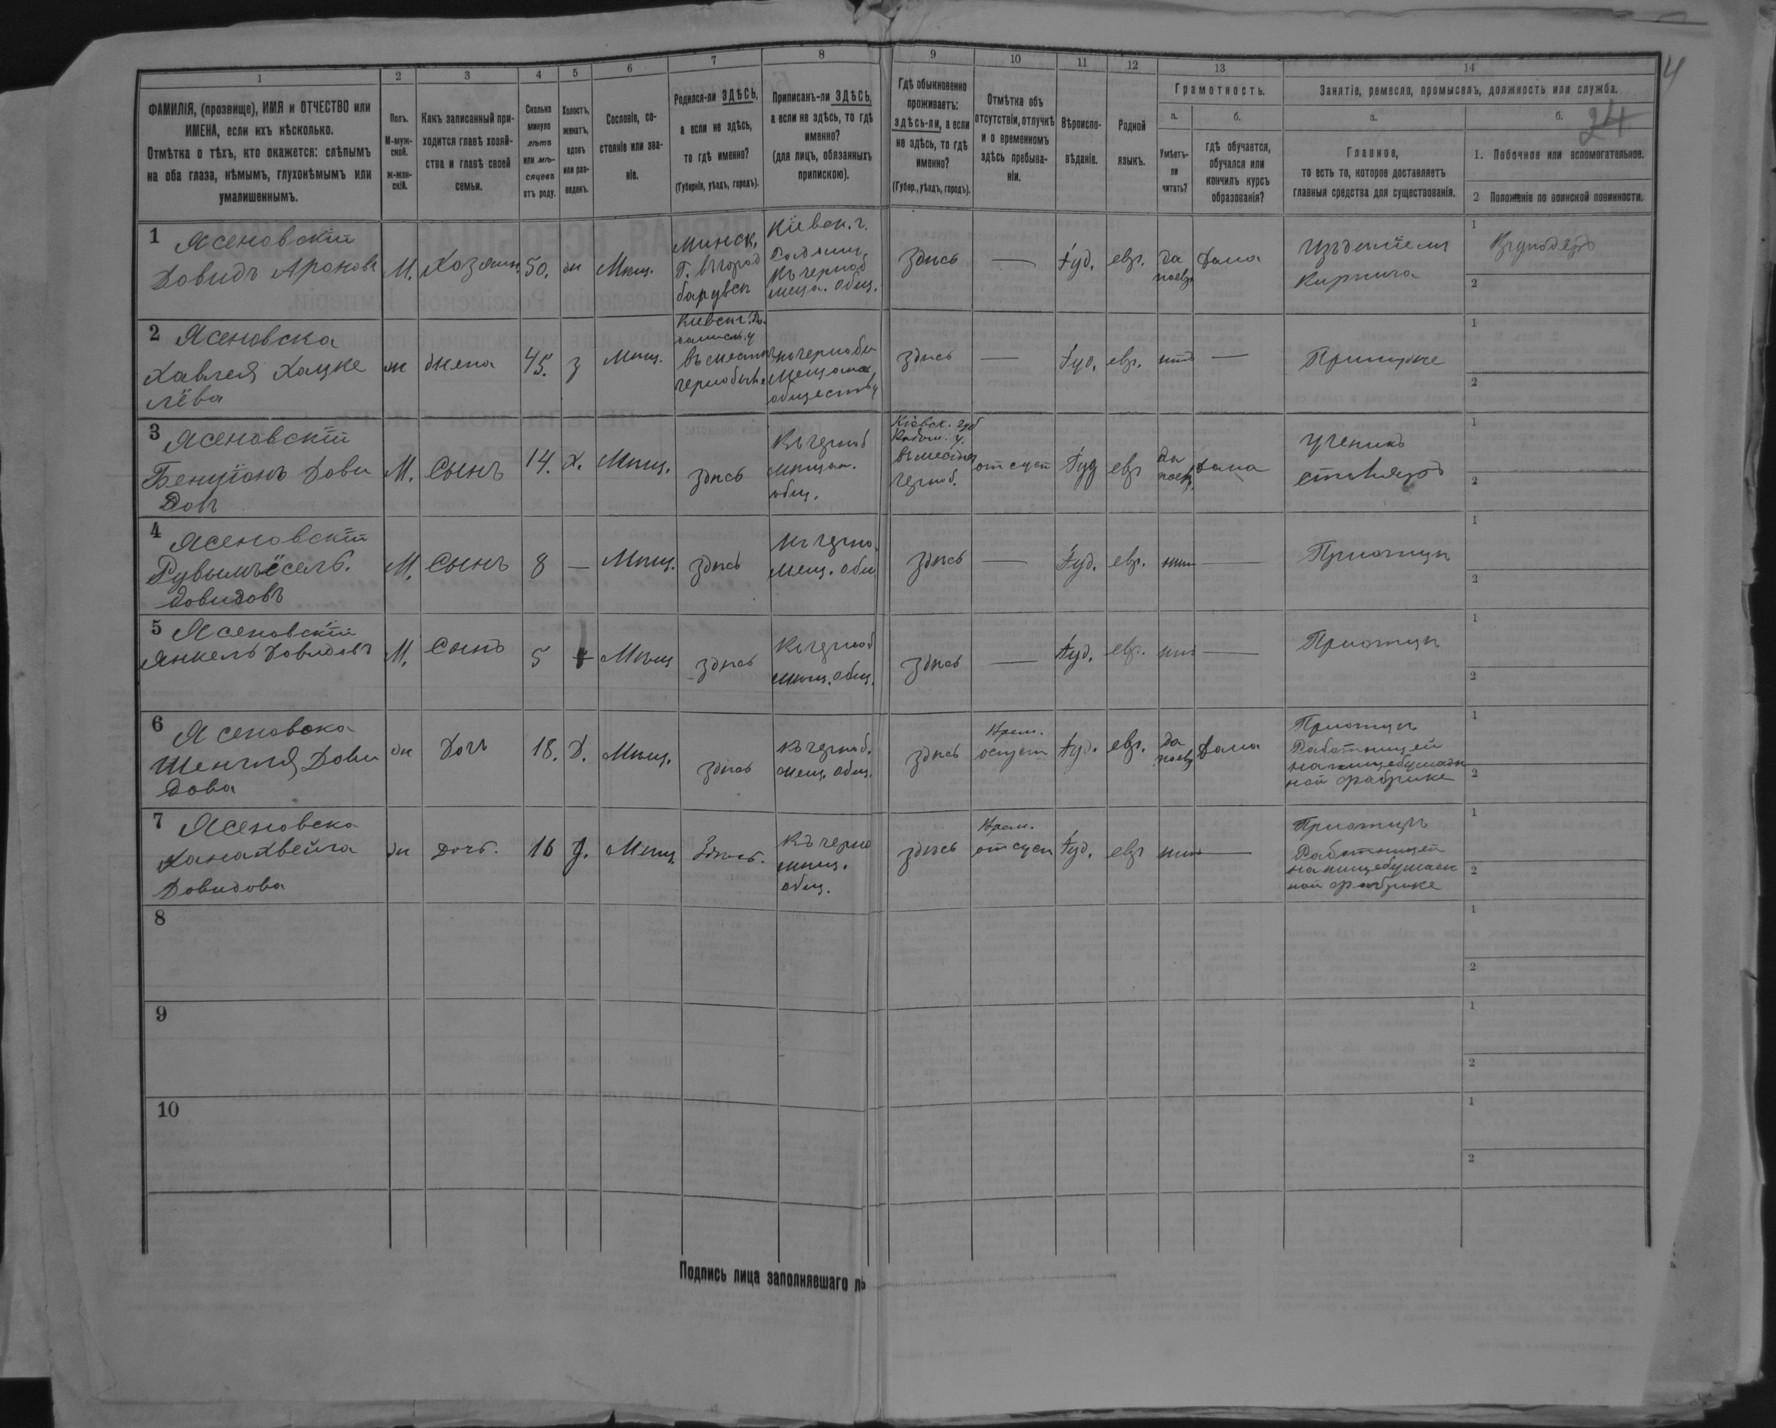 4
24
1 2 3 4 5 6 7 8 9 10 11 12 13 14
ФАМИЛІЯ, (прозвище), ИМЯ и ОТЧЕСТВО или
ИМЕНА, если ихъ нѣсколько.
Отмѣтка о тѣхъ, кто окажется: слѣпымъ
на оба глаза, нѣмымъ, глухонѣмымъ или
умалишеннымъ.
Полъ.
М-муж-
ской.
Ж-жен-
скій.
Какъ записанный при-
ходится главѣ хозяй-
ства и главѣ своей
семьи.
Сколько
минуло
лѣтъ
или мѣ-
сяцевъ
отъ роду.
Холостъ,
женатъ,
вдовъ
или раз-
веденъ.
Сословіе, со-
стояніе или зва-
ніе.
Родился-ли ЗДѢСЬ,
а если не здѣсь,
то гдѣ именно?
(Губернія, уѣздъ, городъ).
Приписанъ-ли ЗДѢСЬ,
а если не здѣсь, то гдѣ
именно?
(для лицъ, обязанныхъ
припискою).
Гдѣ обыкновенно
проживаетъ:
здѣсь-ли, а если
не здѣсь, то гдѣ
именно?
(Губер., уѣздъ, городъ).
Отмѣтка объ
отсутствіи, отлучкѣ
и о временномъ
здѣсь пребыва-
ніи.
Вѣроиспо-
вѣданіе.
Родной
языкъ.
Грамотность.
а.
Умѣетъ-
ли
читать?
б.
гдѣ обучается,
обучался или
кончилъ курсъ
образованія?
Занятіе, ремесло, промыселъ, должность или служба.
а.
Главное,
то есть то, которое доставляетъ
главныя средства для существованія.
б.
1. Побочное или вспомогательное.
2 Положеніе по воинской повинности.
1 Ясеновскій
Довидъ Аронов
М. Хозяин 50. ж Мѣщ.
Минск.
Кіевск. г.
Къ черноб
мѣща. общ.
здѣсь — Іуд. евр. да Дома
Кирпича
1
2
2 Ясеновска
Хацке
лёва
ж жена 45. з Мѣщ.
Въ мест
чернобыл.
обществу
здѣсь — Іуд. евр. нѣт —
При муже
1
2
3 Ясеновскій
Бенціонъ Дови
довъ
М. Сынъ 14. Х. Мѣщ. здѣсь
Къ черноб
мѣщан.
общ.
Кіевск. губ
Радом. у.
Въ мест
черноб.
отсуст Іуд евр да Дома
ученикъ
1
2
4 Ясеновскій
Рувымъ ёсель.
довидовъ
М. Сынъ 8 — Мѣщ. здѣсь
Къ черно.
Мещ. общ
здѣсь — Іуд. евр. нит —
При отцы
1
2
5 Ясеновскій
Янкель Довидовъ
М. Сынъ 5 Мѣщ здѣсь
Къ черноб
мѣщ. общ.
здѣсь — Іуд. евр. нит —
При отцы
1
2
6 Ясеновска
Дови
дова
ж Дочь 18. Д. Мѣщ. здѣсь
Къ черноб.
мещ. общ.
здѣсь
Врем.
Іуд. евр. да Дома
При отцы
Работницей
на пищебумаж
ной фабрике
1
2
7 Ясеновска
Довидова
ж дочь. 16 Д. Мѣщ. Здѣсь.
Къ черно
мѣщ.
общ.
здѣсь
Врем.
отсуст
Іуд. евр нит —
При отцы
Работницей
на пищебумаж
ной фабрике
1
2
8
1
2
9
1
2
10
1
2
Подпись лица заполнявшаго л